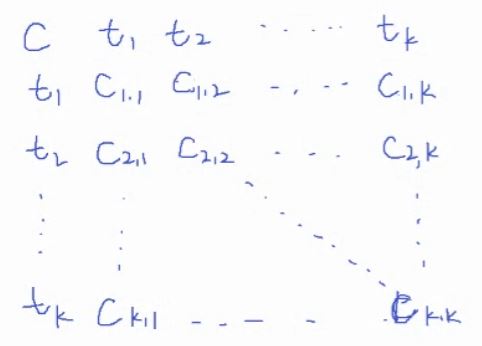 C t₁ t₂ ..... tₖ
t₁ C₁.₁ C₁.₂ -.-- C₁.ₖ
t₂ C₂,₁ C₂,₂ --- C₂,ₖ
tₖ Cₖ,₁ ----- Cₖ.ₖ